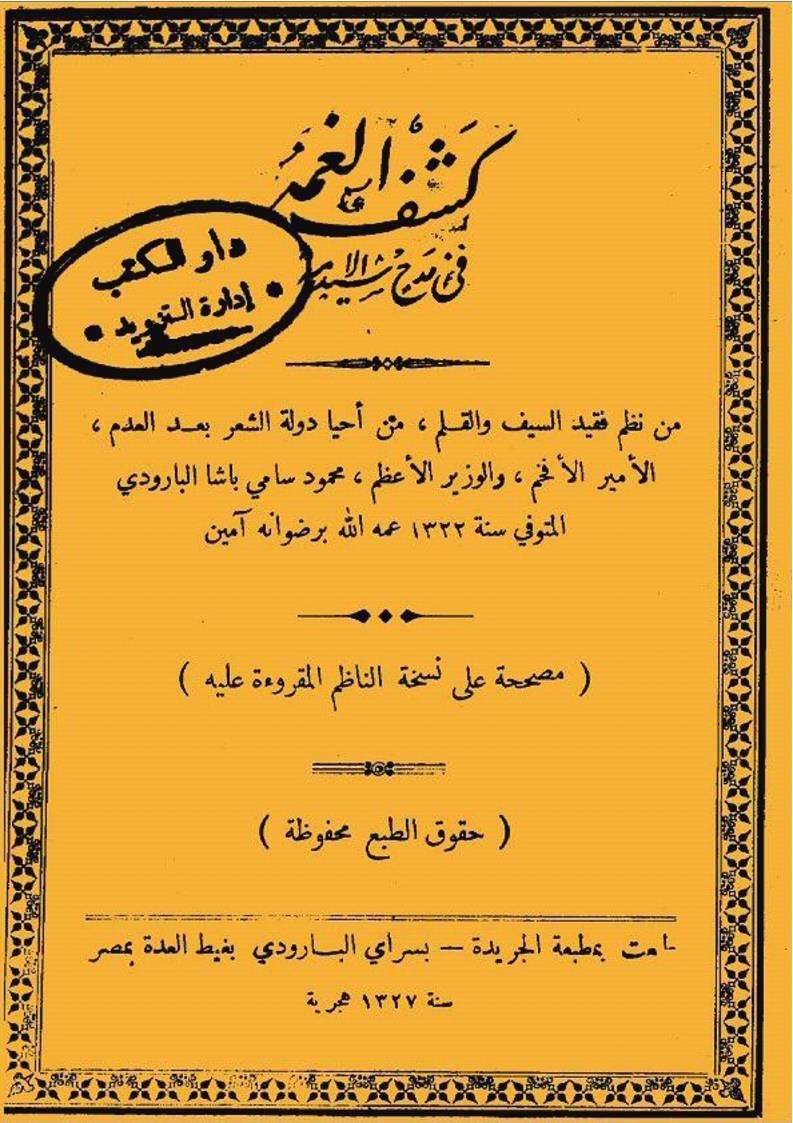 كشف الغمة
في مدح سيد الأمة
دار الكتب
إدارة التزويد
من نظم فقيد السيف والقلم ، من أحيا دولة الشعر بعد العدم ،
الأمير الأفخم ، والوزير الأعظم ، محمود سامي باشا البارودي
المتوفي سنة ١٣٢٢ عمه الله برضوانه آمين
( مصححة على نسخة الناظم المقروءة عليه )
( حقوق الطبع محفوظة )
بمطبعة الجريدة — بسراي البارودي بغيط العدة بمصر
سنة ١٣٢٧ هجرية